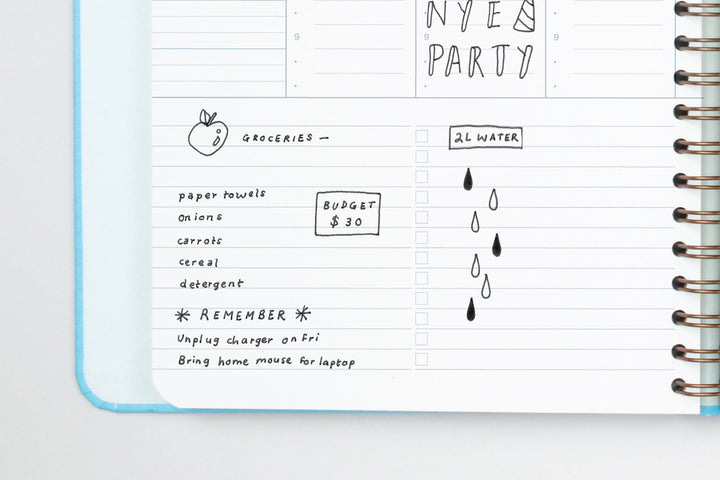 NYE
9
9
PARTY
GROCERIES —
2L WATER
paper towels
BUDGET
$30
onions
carrots
cereal
detergent
* REMEMBER *
Unplug charger on Fri
Bring home mouse for laptop